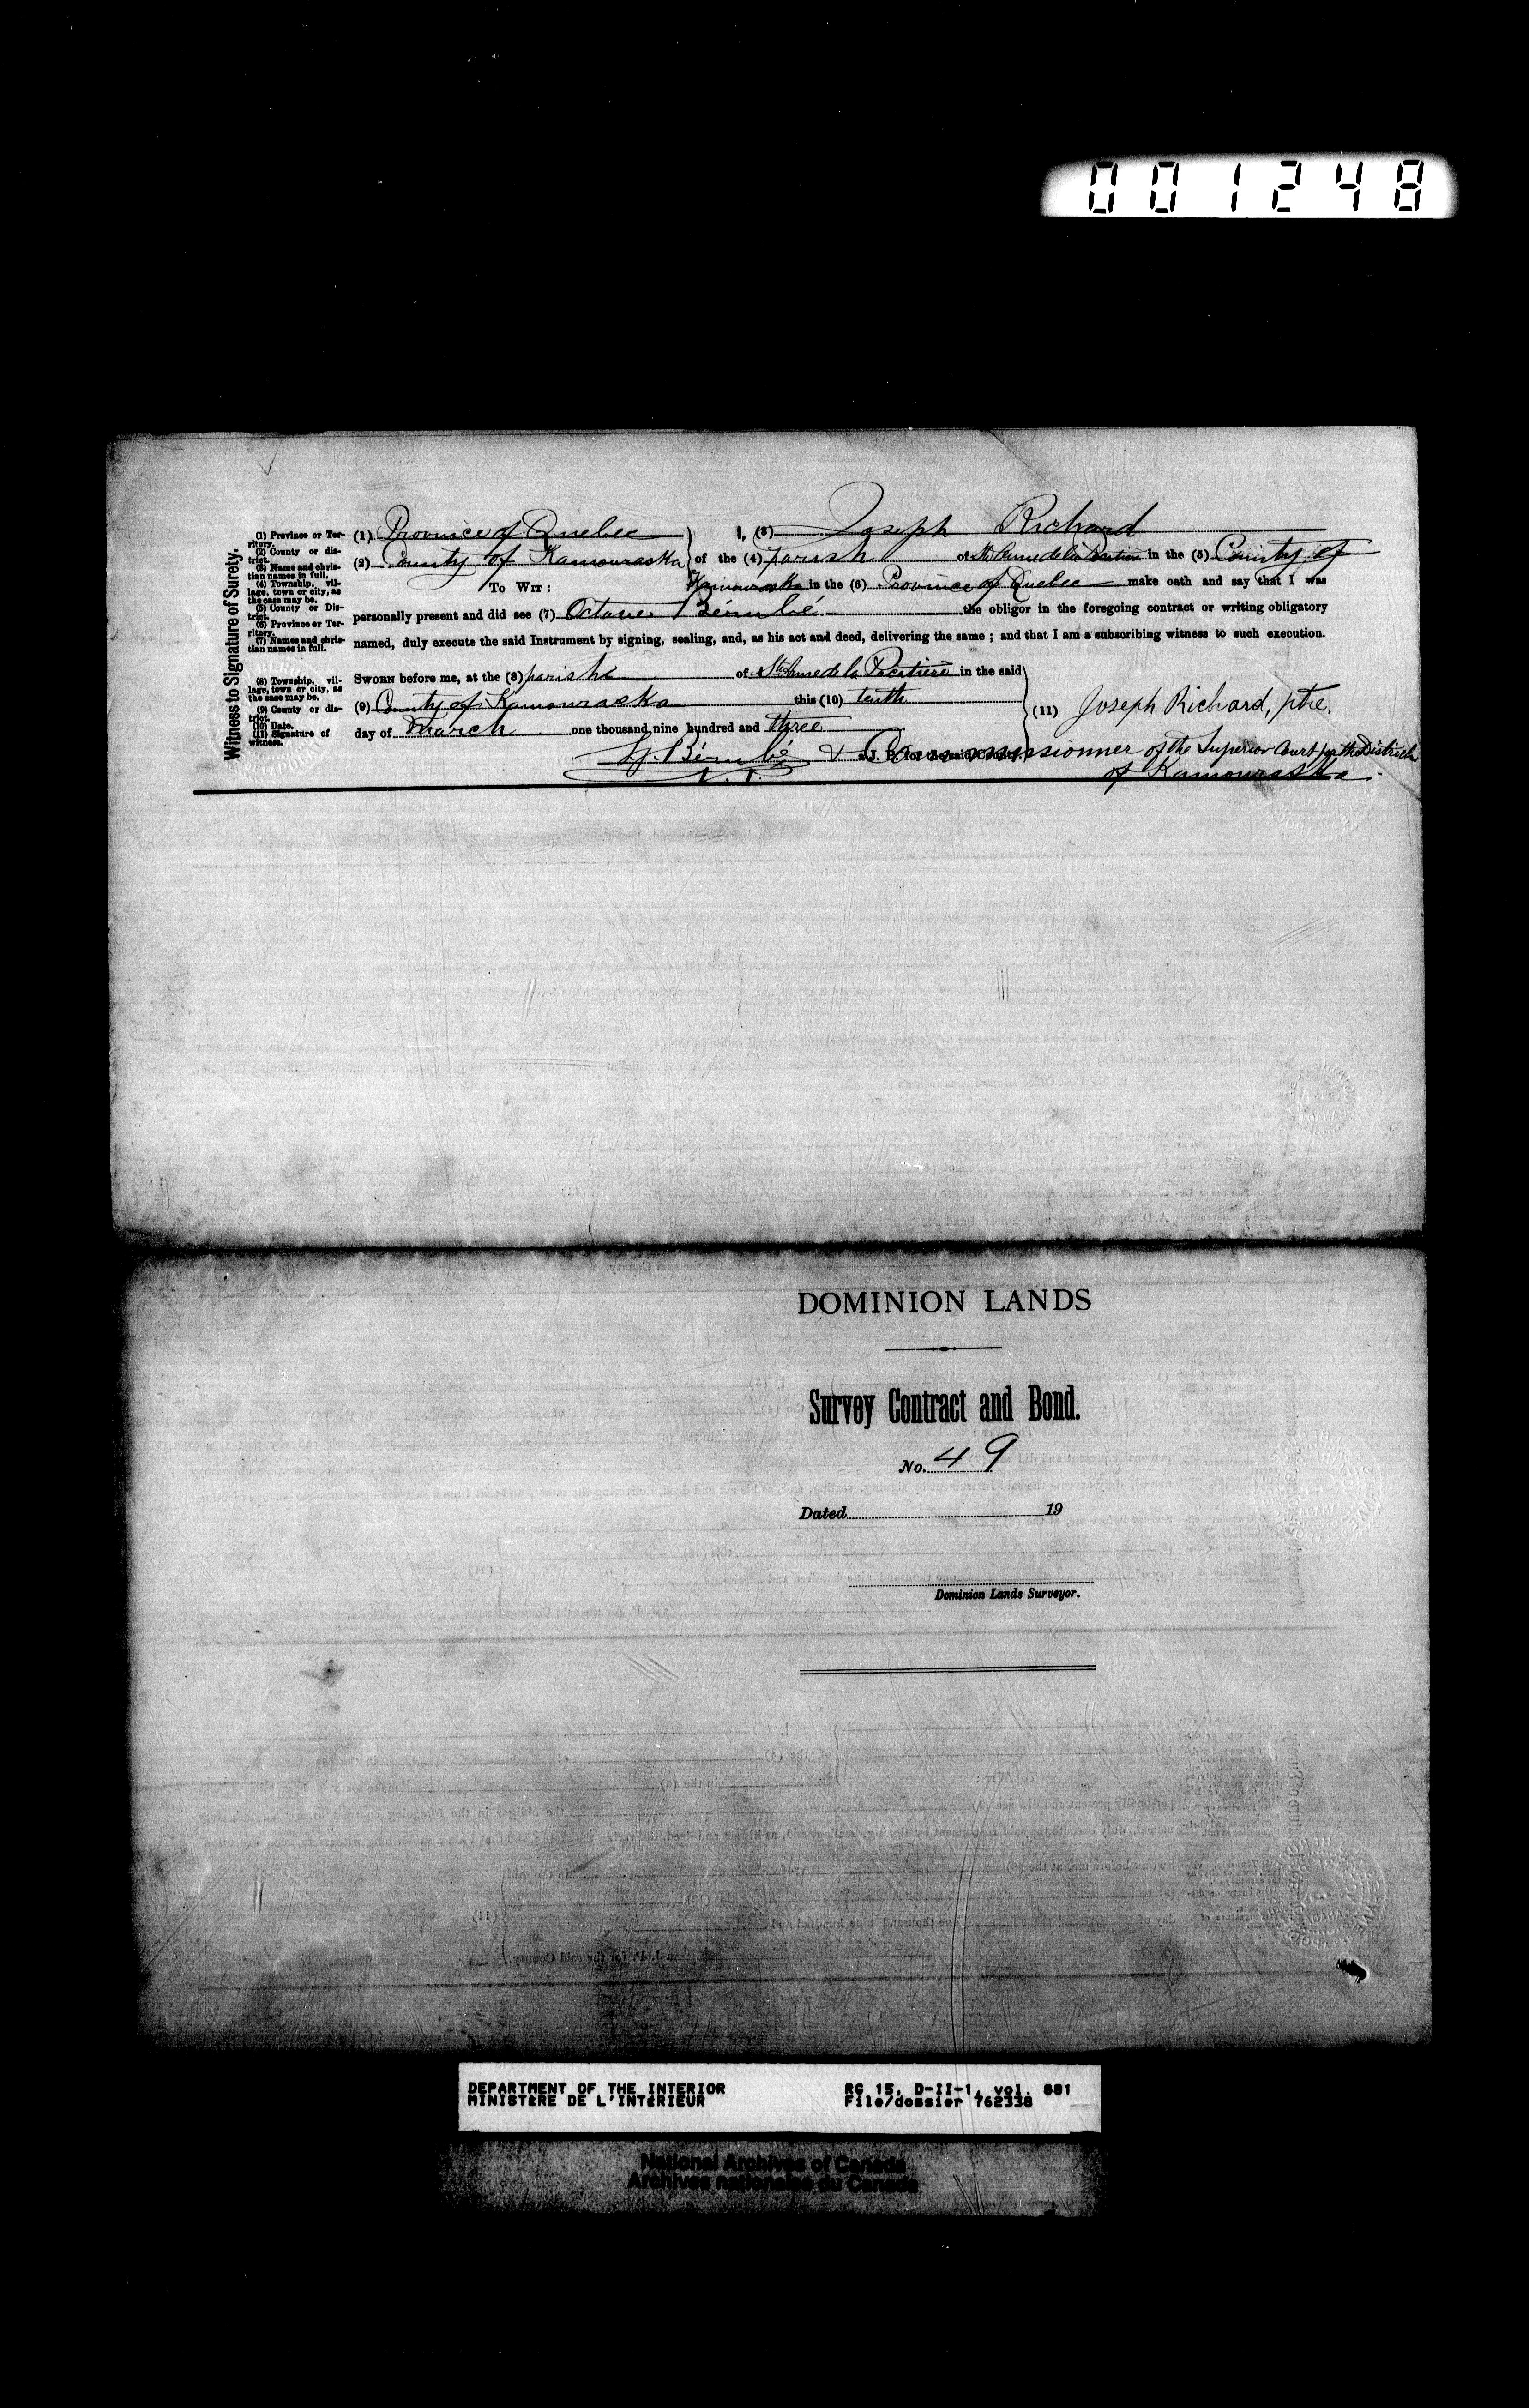 001248
Witness to Signature of Surety.
(1) Province or Territory.
(2) County or district.
(3) Name and christian names in full.
(4) Township, village, town or city, as the case may be.
(5) County or District.
(6) Province or Territory.
(7) Names and christian names in full.
(8) Township, village, town or city, as the case may be.
(9) County or district.
(10) Date.
(11) Signature of witness.
(1) Province of Quebec I, (3) Joseph Richard
(2) County of Kamouraska of the (4) parish of Ste Anne de la Pocatière in the (5) County of
To Wit: Kamouraska in the (6) Province of Quebec make oath and say that I was
personally present and did see (7) Octave Bérubé the obligor in the foregoing contract or writing obligatory
named, duly execute the said Instrument by signing, sealing, and, as his act and deed, delivering the same; and that I am a subscribing witness to such execution.
Sworn before me, at the (8) parish of Ste Anne de la Pocatière in the said
(9) County of Kamouraska this (10) tenth
day of March one thousand nine hundred and three
(11) Joseph Richard, ptre.
Bérubé & Commissionner of the Superior Court for the District
N.P. of Kamouraska.
DOMINION LANDS
Survey Contract and Bond.
No. 49
Dated 19
Dominion Lands Surveyor.
DEPARTMENT OF THE INTERIOR RG 15, D-II-1, vol. 881
MINISTÈRE DE L'INTÉRIEUR File/dossier 762338
National Archives of Canada
Archives nationales du Canada